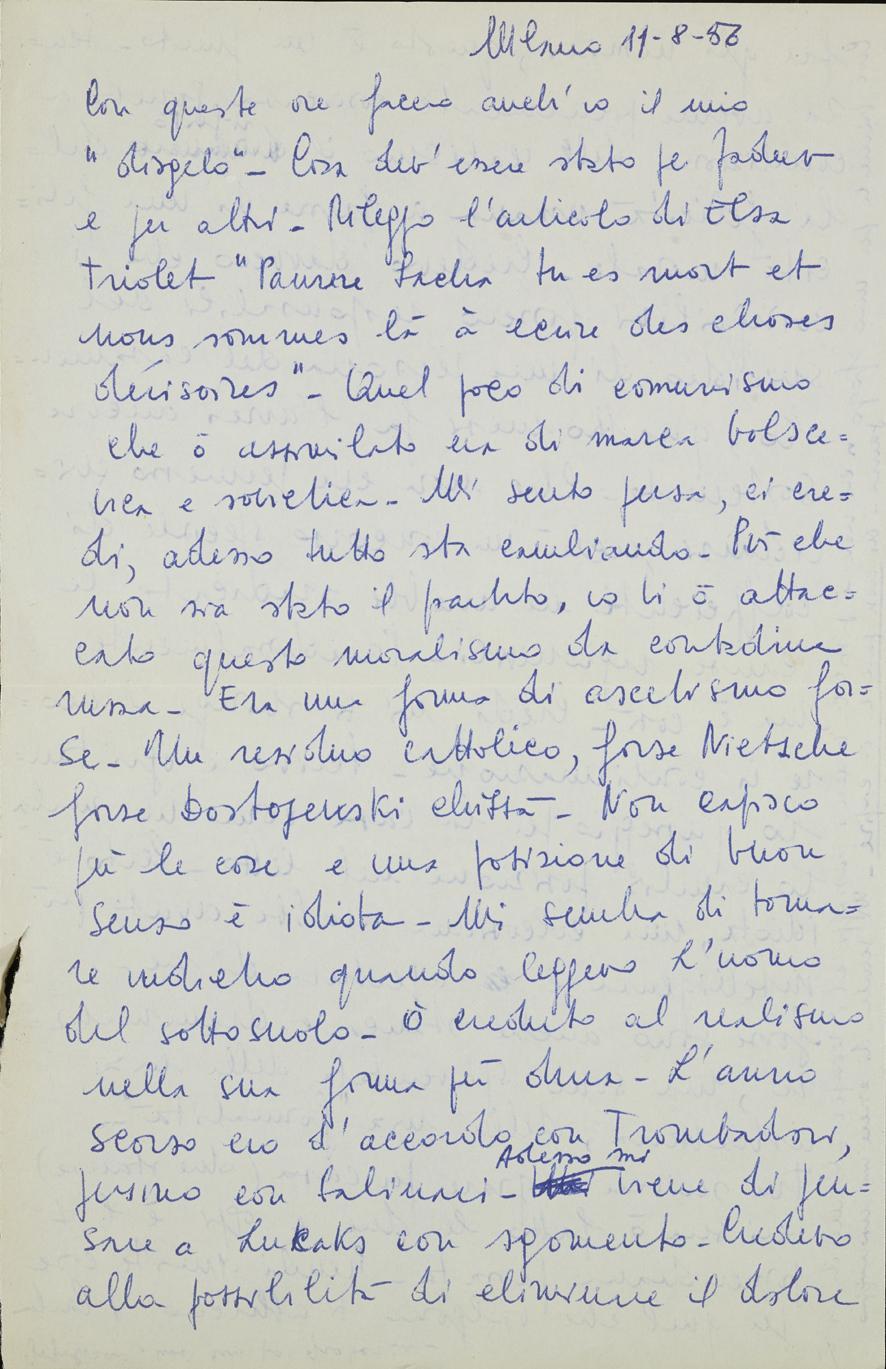 Milano 11-8-56
Con queste ore faccio anch'io il mio
"disgelo" - Cosa dev'essere stato per Fadeev
e per altri - Rileggo l'articolo di Elsa
Triolet "Pauvre Sacha tu es mort et
nous sommes là à ecrire des choses
dérisoires" - Quel poco di comunismo
che ò assimilato era di marca bolsce=
vica e sovietica - Mi sento persa, ci cre=
di, adesso tutto sta cambiando - Più che
non sia stato il partito, io ti ò attac=
cato questo moralismo da contadina
russa - Era una forma di ascetismo for=
se - Un residuo cattolico, forse Nietzsche
forse Dostojevski chissà - Non capisco
più le cose e una posizione di buon
senso è idiota - Mi sembra di torna=
re indietro quando leggevo L'uomo
del sottosuolo - Ò creduto al realismo
nella sua forma più dura - L'anno
scorso ero d'accordo con Trombadori,
persino con Salinari - Adesso mi viene di pen=
sare a Lukaks con sgomento - Credevo
alla possibilità di eliminare il dolore